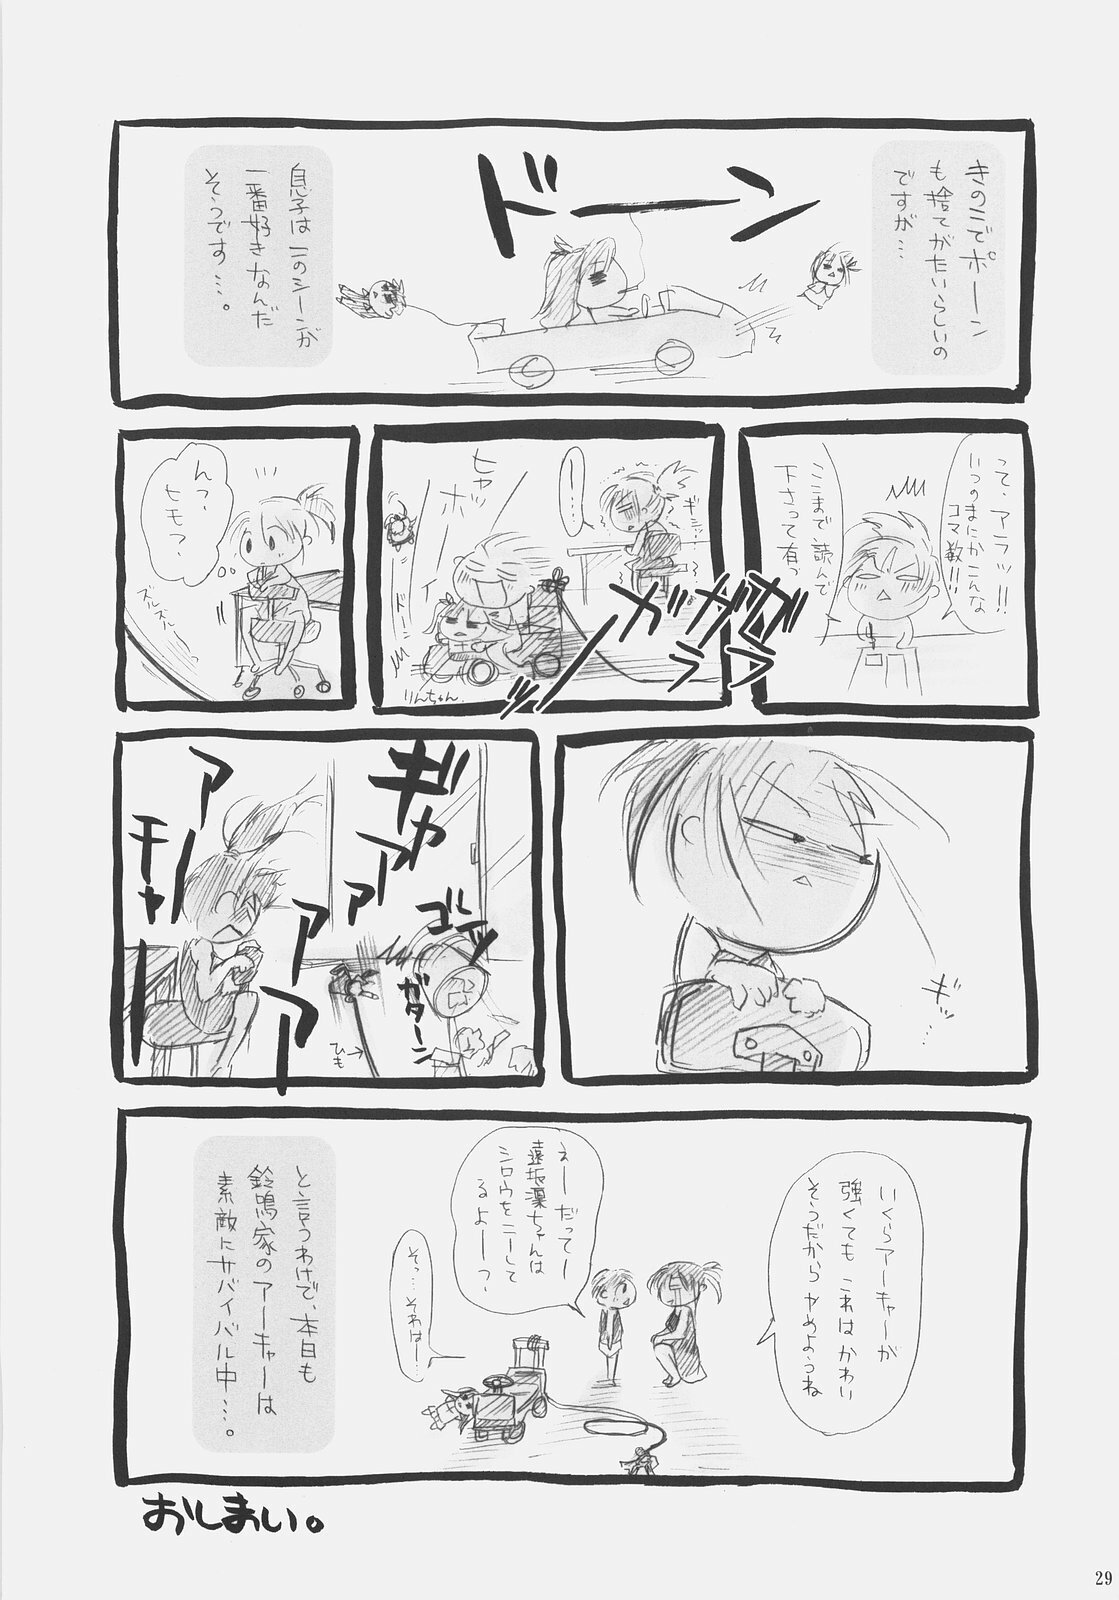 きのこでポーン
も捨てがたいらしいの
ですが…
ドーン
息子は一のシーンが
一番好きなんだ
そうです…。
って、アラッ!!
いつのまにかこんな
コマ数!!
ここまで、読んで
下さって有っ
ギシッ
ガガガ
ララ
ッ
ヒャッ
ホーイ
りんちゃん
んっ、
ヒモっ、
ズルズル
ギッ
…
ギャアアアアア
アーモチャー
ゴルァッ
ガターン
ひも
いくらアーチャーが
強くても これはかわい
そうだから やめようね
えーだってー
遠坂凛ちゃんは
シロウをこーして
るよーっ
そっ…それはー…
と言うわけで、本日も
鈴鳴家のアーチャーは
素敵にサバイバル中…。
おしまい。
29